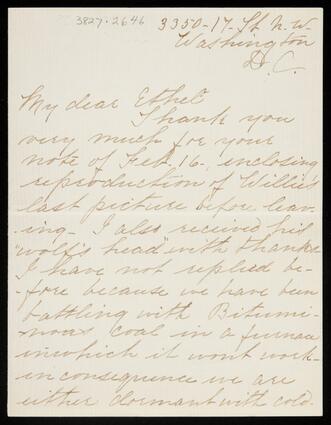 3827.2646
3350-17-St N.W.
Washington
D.C.
My dear Ethel
Thank you
very much for your
note of Feb-16- enclosing
reproduction of Willie's
last picture before leav-
ing- I also received his
"wolf's head" with thanks
I have not replied be-
fore because we have been
battling with Bitumi-
nous coal in a furnace
in which it wont work-
in consequence we are
either dormant with cold